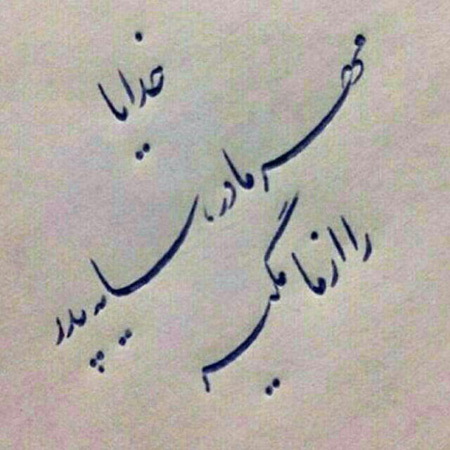 خدایا
مهر مادر، سایه پدر
را از ما مگیر